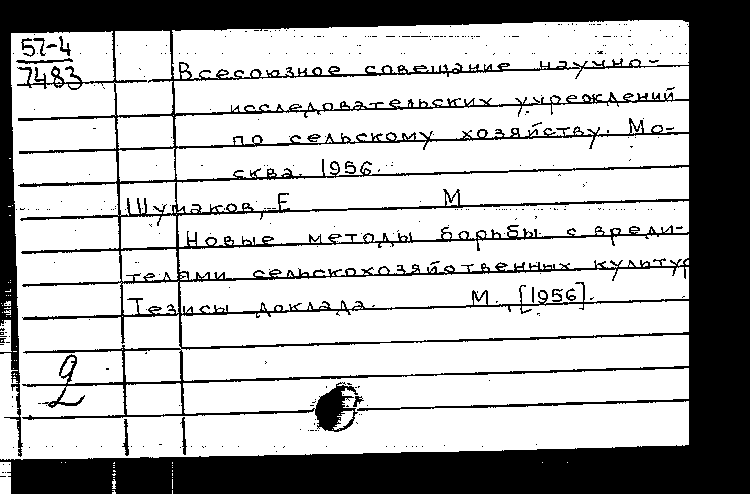 57-4
7483
Всесоюзное совещание научно-
исследовательских учреждений
по сельскому хозяйству. Мо-
сква. 1956.
Шумаков, Е М
Новые методы борьбы с вреди-
телями сельскохозяйственных культур
Тезисы доклада. М., [1956].
2